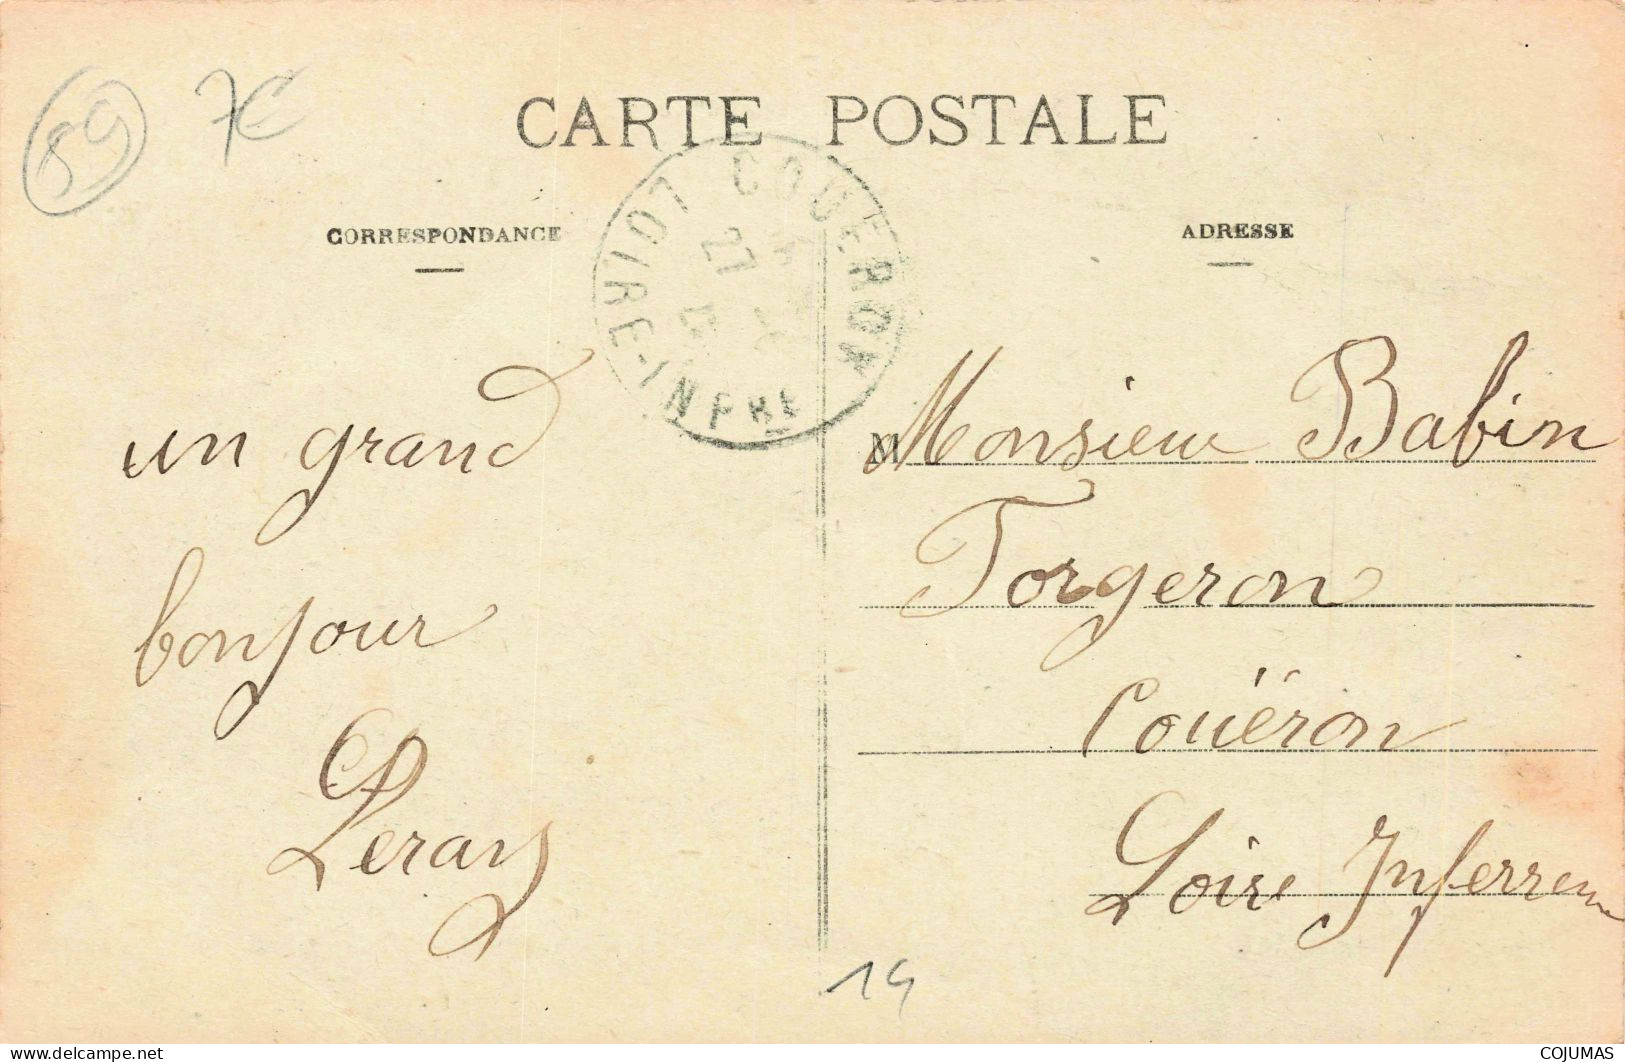 89 7€
CARTE POSTALE
CORRESPONDANCE
ADRESSE
COUERON
27
LOIRE-INFRE
un grand
bonjour
Leray
M
Monsieur Babin
Forgeron
Couëron
Loire Inferreure
14
www.delcampe.net
COJUMAS